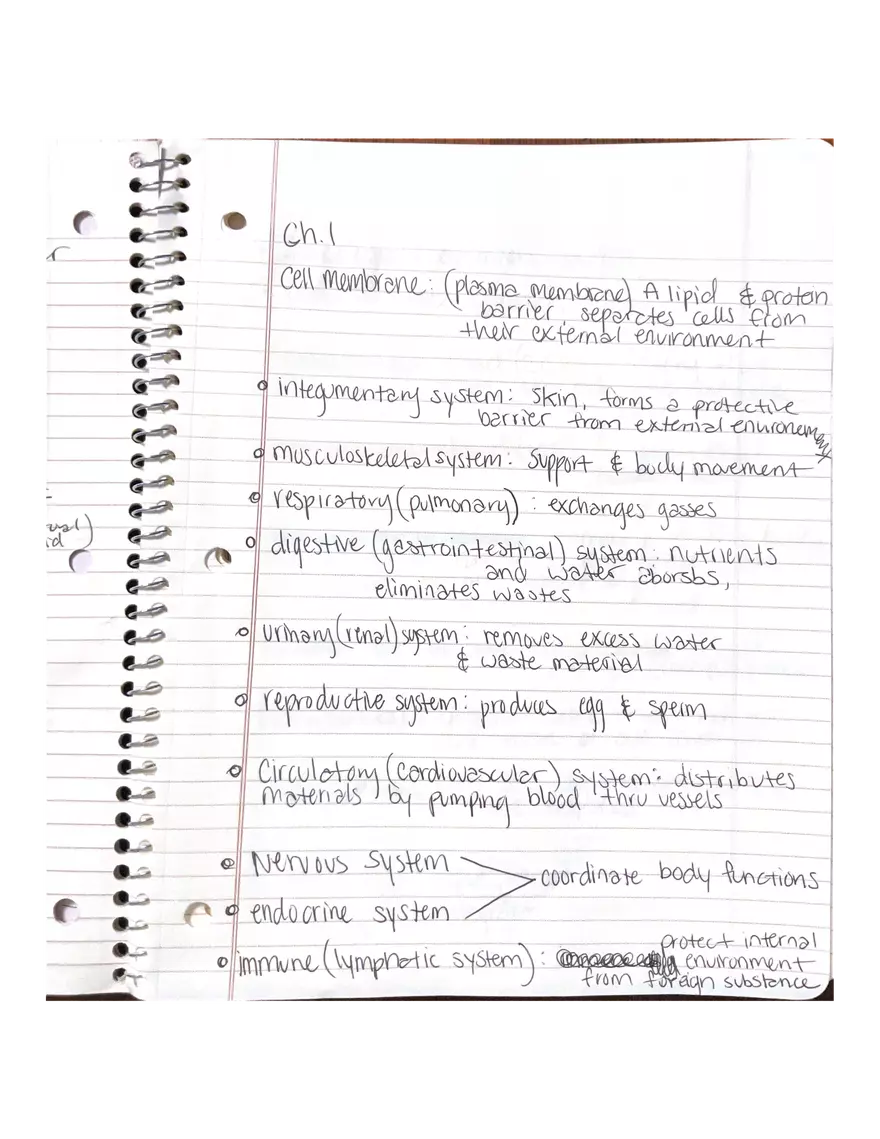 r
Ch.1
Cell membrane: (plasma membrane) A lipid & protein
barrier, separates cells from
their external environment
integumentary system: Skin, forms a protective
barrier from external environement
musculoskeletal system: Support & body movement
respiratory (pulmonary): exchanges gasses
ual)
id
digestive (gastrointestinal) system: nutrients
and water aborsbs,
eliminates wastes
urinary (renal) system: removes excess water
& waste material
reproductive system: produces egg & sperm
Circulatory (Cardiovascular) system: distributes
materials by pumping blood thru vessels
Nervous system
coordinate body functions
endocrine system
immune (lymphatic system): protect internal
environment
from foreign substance